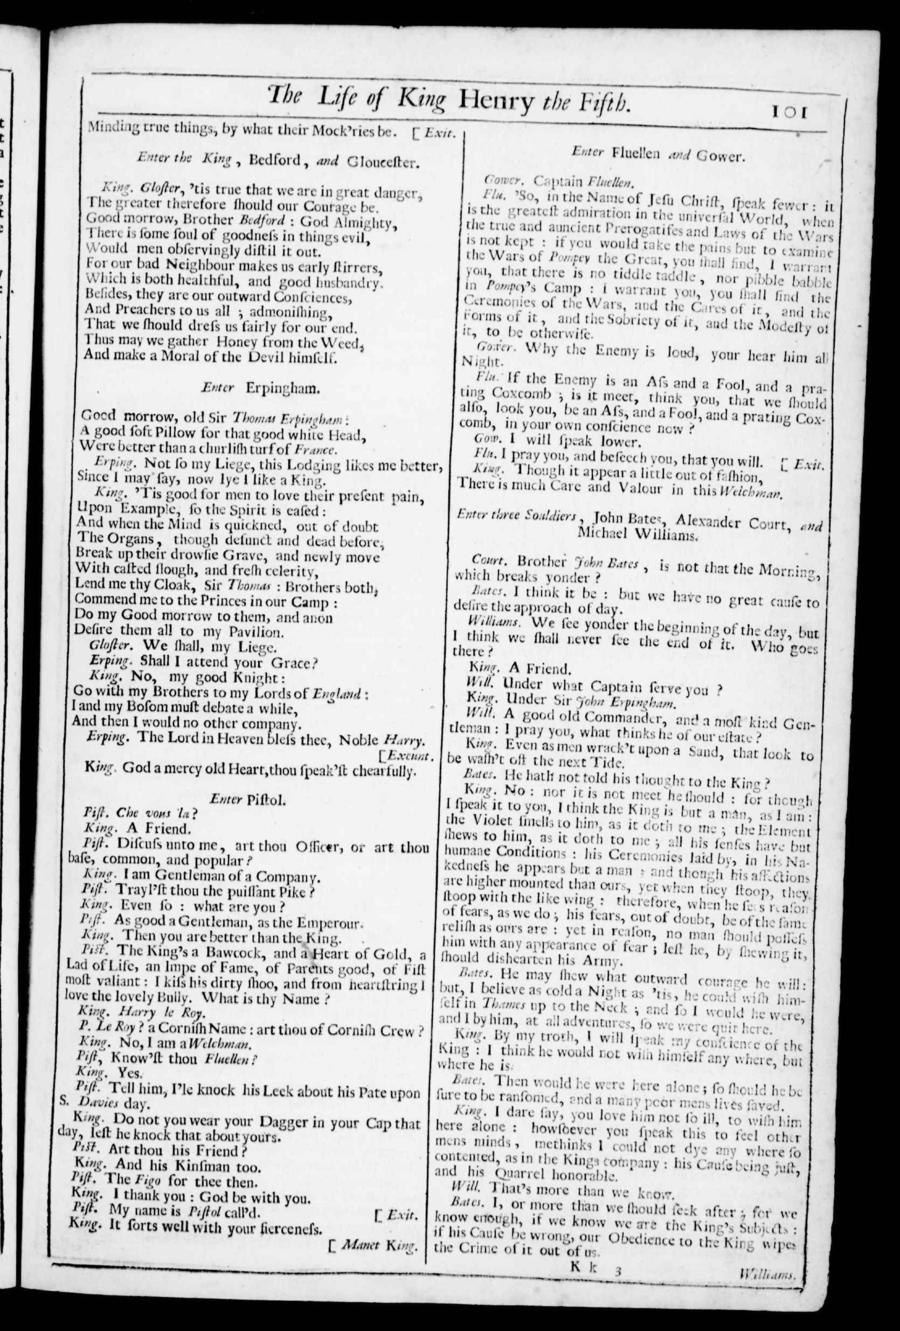 The Life of King Henry the Fifth. 101
Minding true things, by what their Mock'ries be. [ Exit.
Enter the King, Bedford, and Glouceſter.
King. Gloſter, 'tis true that we are in great danger,
The greater therefore ſhould our Courage be.
Good morrow, Brother Bedford : God Almighty,
There is ſome ſoul of goodneſs in things evil,
Would men obſervingly diſtil it out.
For our bad Neighbour makes us early ſtirrers,
Which is both healthful, and good husbandry.
Beſides, they are our outward Conſciences,
And Preachers to us all ; admoniſhing,
That we ſhould dreſs us fairly for our end.
Thus may we gather Honey from the Weed,
And make a Moral of the Devil himſelf.
Enter Erpingham.
Good morrow, old Sir Thomas Erpingham :
A good ſoft Pillow for that good white Head,
Were better than a churliſh turf of France.
Erping. Not ſo my Liege, this Lodging likes me better,
Since I may ſay, now lye I like a King.
King. 'Tis good for men to love their preſent pain,
Upon Example, ſo the Spirit is eaſed :
And when the Mind is quickned, out of doubt
The Organs, though defunct and dead before,
Break up their drowſie Grave, and newly move
With caſted ſlough, and freſh celerity,
Lend me thy Cloak, Sir Thomas : Brothers both,
Commend me to the Princes in our Camp :
Do my Good morrow to them, and anon
Deſire them all to my Pavilion.
Gloſter. We ſhall, my Liege.
Erping. Shall I attend your Grace?
King. No, my good Knight :
Go with my Brothers to my Lords of England :
I and my Boſom muſt debate a while,
And then I would no other company.
Erping. The Lord in Heaven bleſs thee, Noble Harry.
[Exeunt.
King. God a mercy old Heart, thou ſpeak'ſt chearfully.
Enter Piſtol.
Piſt. Che vous la?
King. A Friend.
Piſt. Diſcuſs unto me, art thou Officer, or art thou
baſe, common, and popular?
King. I am Gentleman of a Company.
Piſt. Trayl'ſt thou the puiſſant Pike?
King. Even ſo : what are you?
Piſt. As good a Gentleman, as the Emperour.
King. Then you are better than the King.
Piſt. The King's a Bawcock, and a Heart of Gold, a
Lad of Life, an Impe of Fame, of Parents good, of Fiſt
moſt valiant : I kiſs his dirty ſhoo, and from heartſtring I
love the lovely Bully. What is thy Name?
King. Harry le Roy.
P. Le Roy? a Corniſh Name : art thou of Corniſh Crew?
King. No, I am a Welchman.
Piſt, Know'ſt thou Fluellen?
King. Yes.
Piſt. Tell him, I'le knock his Leek about his Pate upon
S. Davies day.
King. Do not you wear your Dagger in your Cap that
day, leſt he knock that about yours.
Piſt. Art thou his Friend?
King. And his Kinſman too.
Piſt. The Figo for thee then.
King. I thank you : God be with you.
Piſt. My name is Piſtol call'd. [ Exit.
King. It ſorts well with your fierceneſs.
[ Manet King.
Enter Fluellen and Gower.
Gower. Captain Fluellen.
Flu. 'So, in the Name of Jeſu Chriſt, ſpeak fewer : it
is the greateſt admiration in the univerſal World, when
the true and auncient Prerogatifes and Laws of the Wars
is not kept : if you would take the pains but to examine
the Wars of Pompey the Great, you ſhall find, I warrant
you, that there is no tiddle taddle, nor pibble babble
in Pompey's Camp : I warrant you, you ſhall find the
Ceremonies of the Wars, and the Cares of it, and the
Forms of it, and the Sobriety of it, and the Modeſty of
it, to be otherwiſe.
Gower. Why the Enemy is loud, your hear him all
Night.
Flu. If the Enemy is an Aſs and a Fool, and a pra-
ting Coxcomb ; is it meet, think you, that we ſhould
alſo, look you, be an Aſs, and a Fool, and a prating Cox-
comb, in your own conſcience now?
Gow. I will ſpeak lower.
Flu. I pray you, and beſeech you, that you will. [ Exit.
King. Though it appear a little out of faſhion,
There is much Care and Valour in this Welchman.
Enter three Souldiers, John Bates, Alexander Court, and
Michael Williams.
Court. Brother John Bates, is not that the Morning,
which breaks yonder?
Bates. I think it be : but we have no great cauſe to
deſire the approach of day.
Williams. We ſee yonder the beginning of the day, but
I think we ſhall never ſee the end of it. Who goes
there?
King. A Friend.
Will. Under what Captain ſerve you?
King. Under Sir John Erpingham.
Will. A good old Commander, and a moſt kind Gen-
tleman : I pray you, what thinks he of our eſtate?
King. Even as men wrack't upon a Sand, that look to
be waſh't off the next Tide.
Bates. He hath not told his thought to the King?
King. No : nor it is not meet he ſhould : for though
I ſpeak it to you, I think the King is but a man, as I am :
the Violet ſmells to him, as it doth to me ; the Element
ſhews to him, as it doth to me ; all his ſenſes have but
humane Conditions : his Ceremonies laid by, in his Na-
kedneſs he appears but a man : and though his affections
are higher mounted than ours, yet when they ſtoop, they
ſtoop with the like wing : therefore, when he ſees reaſon
of fears, as we do ; his fears, out of doubt, be of the ſame
reliſh as ours are : yet in reaſon, no man ſhould poſſeſs
him with any appearance of fear ; leſt he, by ſhewing it,
ſhould dishearten his Army.
Bates. He may ſhew what outward courage he will :
but, I believe as cold a Night as 'tis, he could wiſh him-
ſelf in Thames up to the Neck ; and ſo I would he were,
and I by him, at all adventures, ſo we were quit here.
King. By my troth, I will ſpeak my conſcience of the
King : I think he would not wiſh himſelf any where, but
where he is.
Bates. Then would he were here alone ; ſo ſhould he be
ſure to be ranſomed, and a many poor mens lives ſaved.
King. I dare ſay, you love him not ſo ill, to wiſh him
here alone : howſoever you ſpeak this to feel other
mens minds, methinks I could not dye any where ſo
contented, as in the Kings company : his Cauſe being juſt,
and his Quarrel honorable.
Will. That's more than we know.
Bates. I, or more than we ſhould ſeek after ; for we
know enough, if we know we are the King's Subjects :
if his Cauſe be wrong, our Obedience to the King wipes
the Crime of it out of us.
K k 3 Williams.